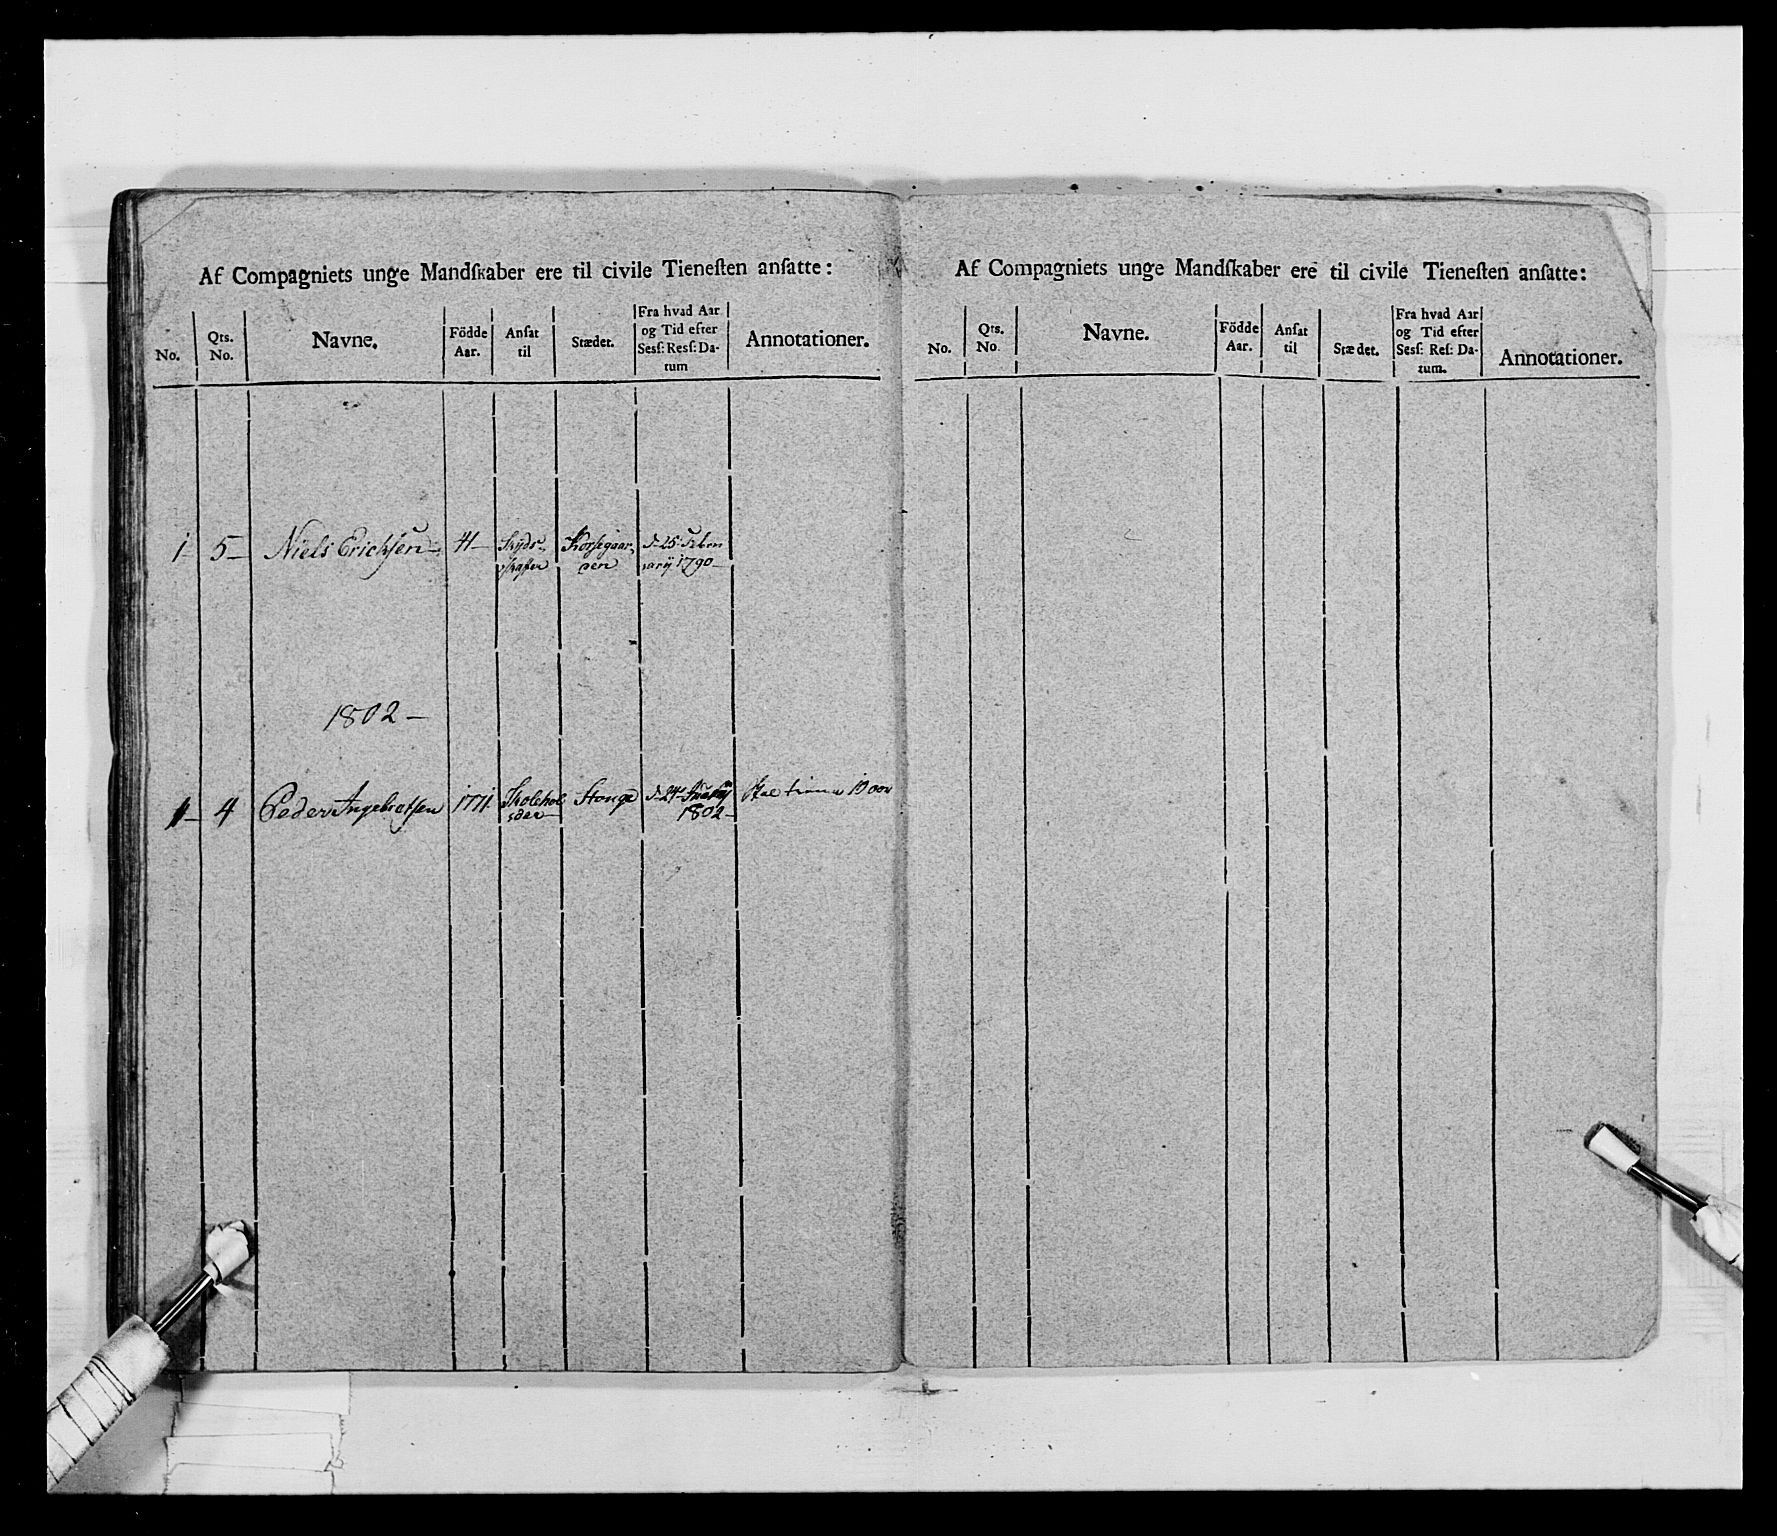 Af Compagniets unge Mandſkaber ere til civile Tieneſten anſatte:
No. Qts. No. Navne. Födde Aar. Anſat til Stædet. Fra hvad Aar og Tid efter Sesſ: Resſ: Datum Annotationer.
1 5 Niels Erichsen 41 Skyds-skaffer Korsegaarden d. 25 Februarij 1790
1802
1 4 Peder Ingebretsen 1771 Skoleholder Stange d. 24 1802 Skal tiene 10
Af Compagniets unge Mandſkaber ere til civile Tieneſten anſatte:
No. Qts. No. Navne. Födde Aar. Anſat til Stædet. Fra hvad Aar og Tid efter Sesſ: Reſ: Datum. Annotationer.